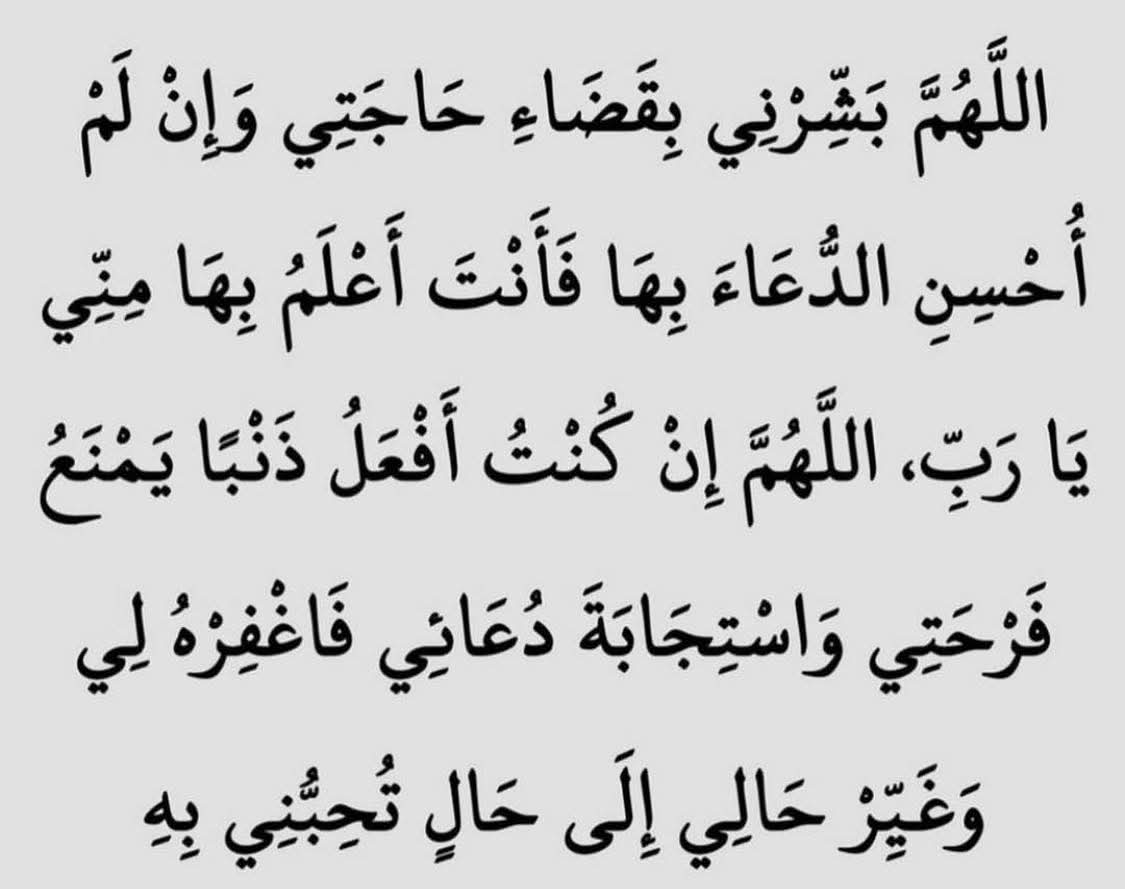 اللَّهُمَّ بَشِّرْنِي بِقَضَاءِ حَاجَتِي وَإِنْ لَمْ
أُحْسِنِ الدُّعَاءَ بِهَا فَأَنْتَ أَعْلَمُ بِهَا مِنِّي
يَا رَبِّ، اللَّهُمَّ إِنْ كُنْتُ أَفْعَلُ ذَنْبًا يَمْنَعُ
فَرْحَتِي وَاسْتِجَابَةَ دُعَائِي فَاغْفِرْهُ لِي
وَغَيِّرْ حَالِي إِلَى حَالٍ تُحِبُّنِي بِهِ